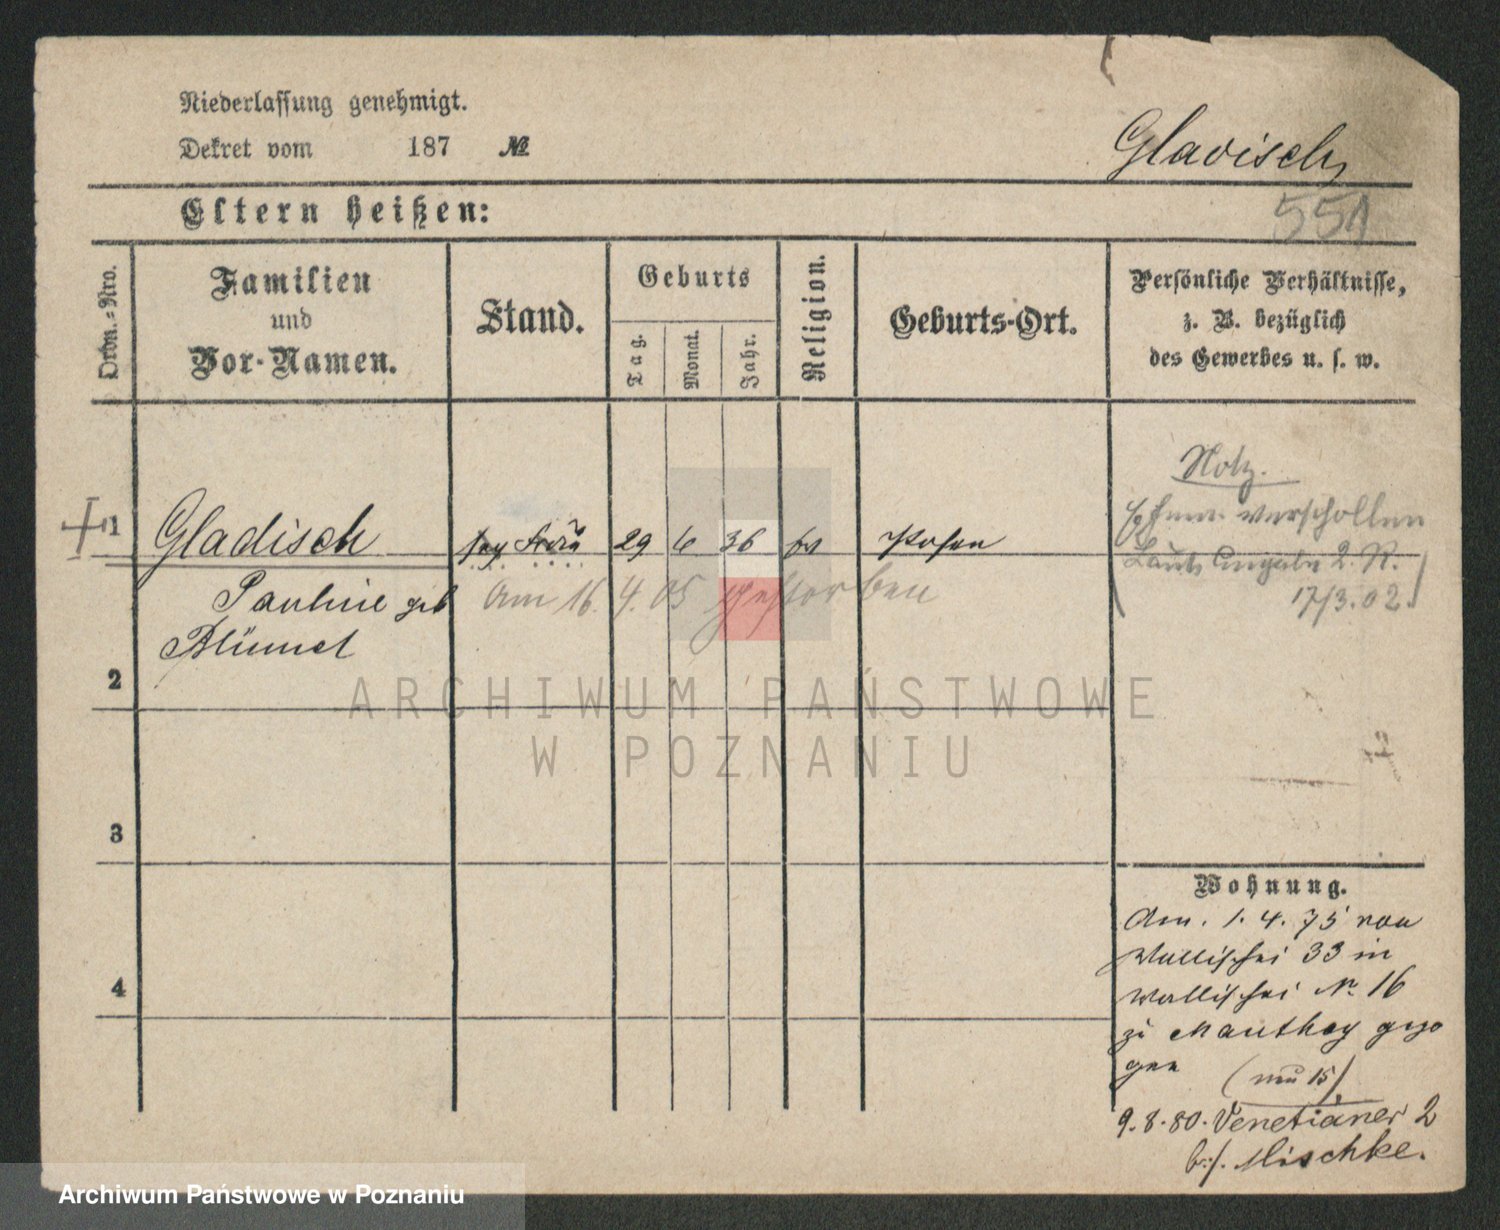 Niederlassung genehmigt.
Dekret vom 187 №
Gladisch
551
Eltern heißen:
Ordn.-Nro.
Familien
und
Vor-Namen.
Stand.
Geburts
Tag.
Monat.
Jahr.
Religion.
Geburts-Ort.
Persönliche Verhältnisse,
z. B. bezüglich
des Gewerbes u. s. w.
Notiz.
Ehem. verschollen
Laut Angabe 2. R.
17/3.02.
1 Gladisch Frau 29 6 36 ev Posen
Pauline geb
Blümel
am 16. 4. 05 gestorben
2
3
4
ARCHIWUM PAŃSTWOWE
W POZNANIU
Wohnung.
Am. 1. 4. 75 von
Wallischei 33 in
Wallischei No 16
zu Manthey gezo
gen (nun 15)
9.8.80. Venetianer 2
b./. Mischke.
Archiwum Państwowe w Poznaniu